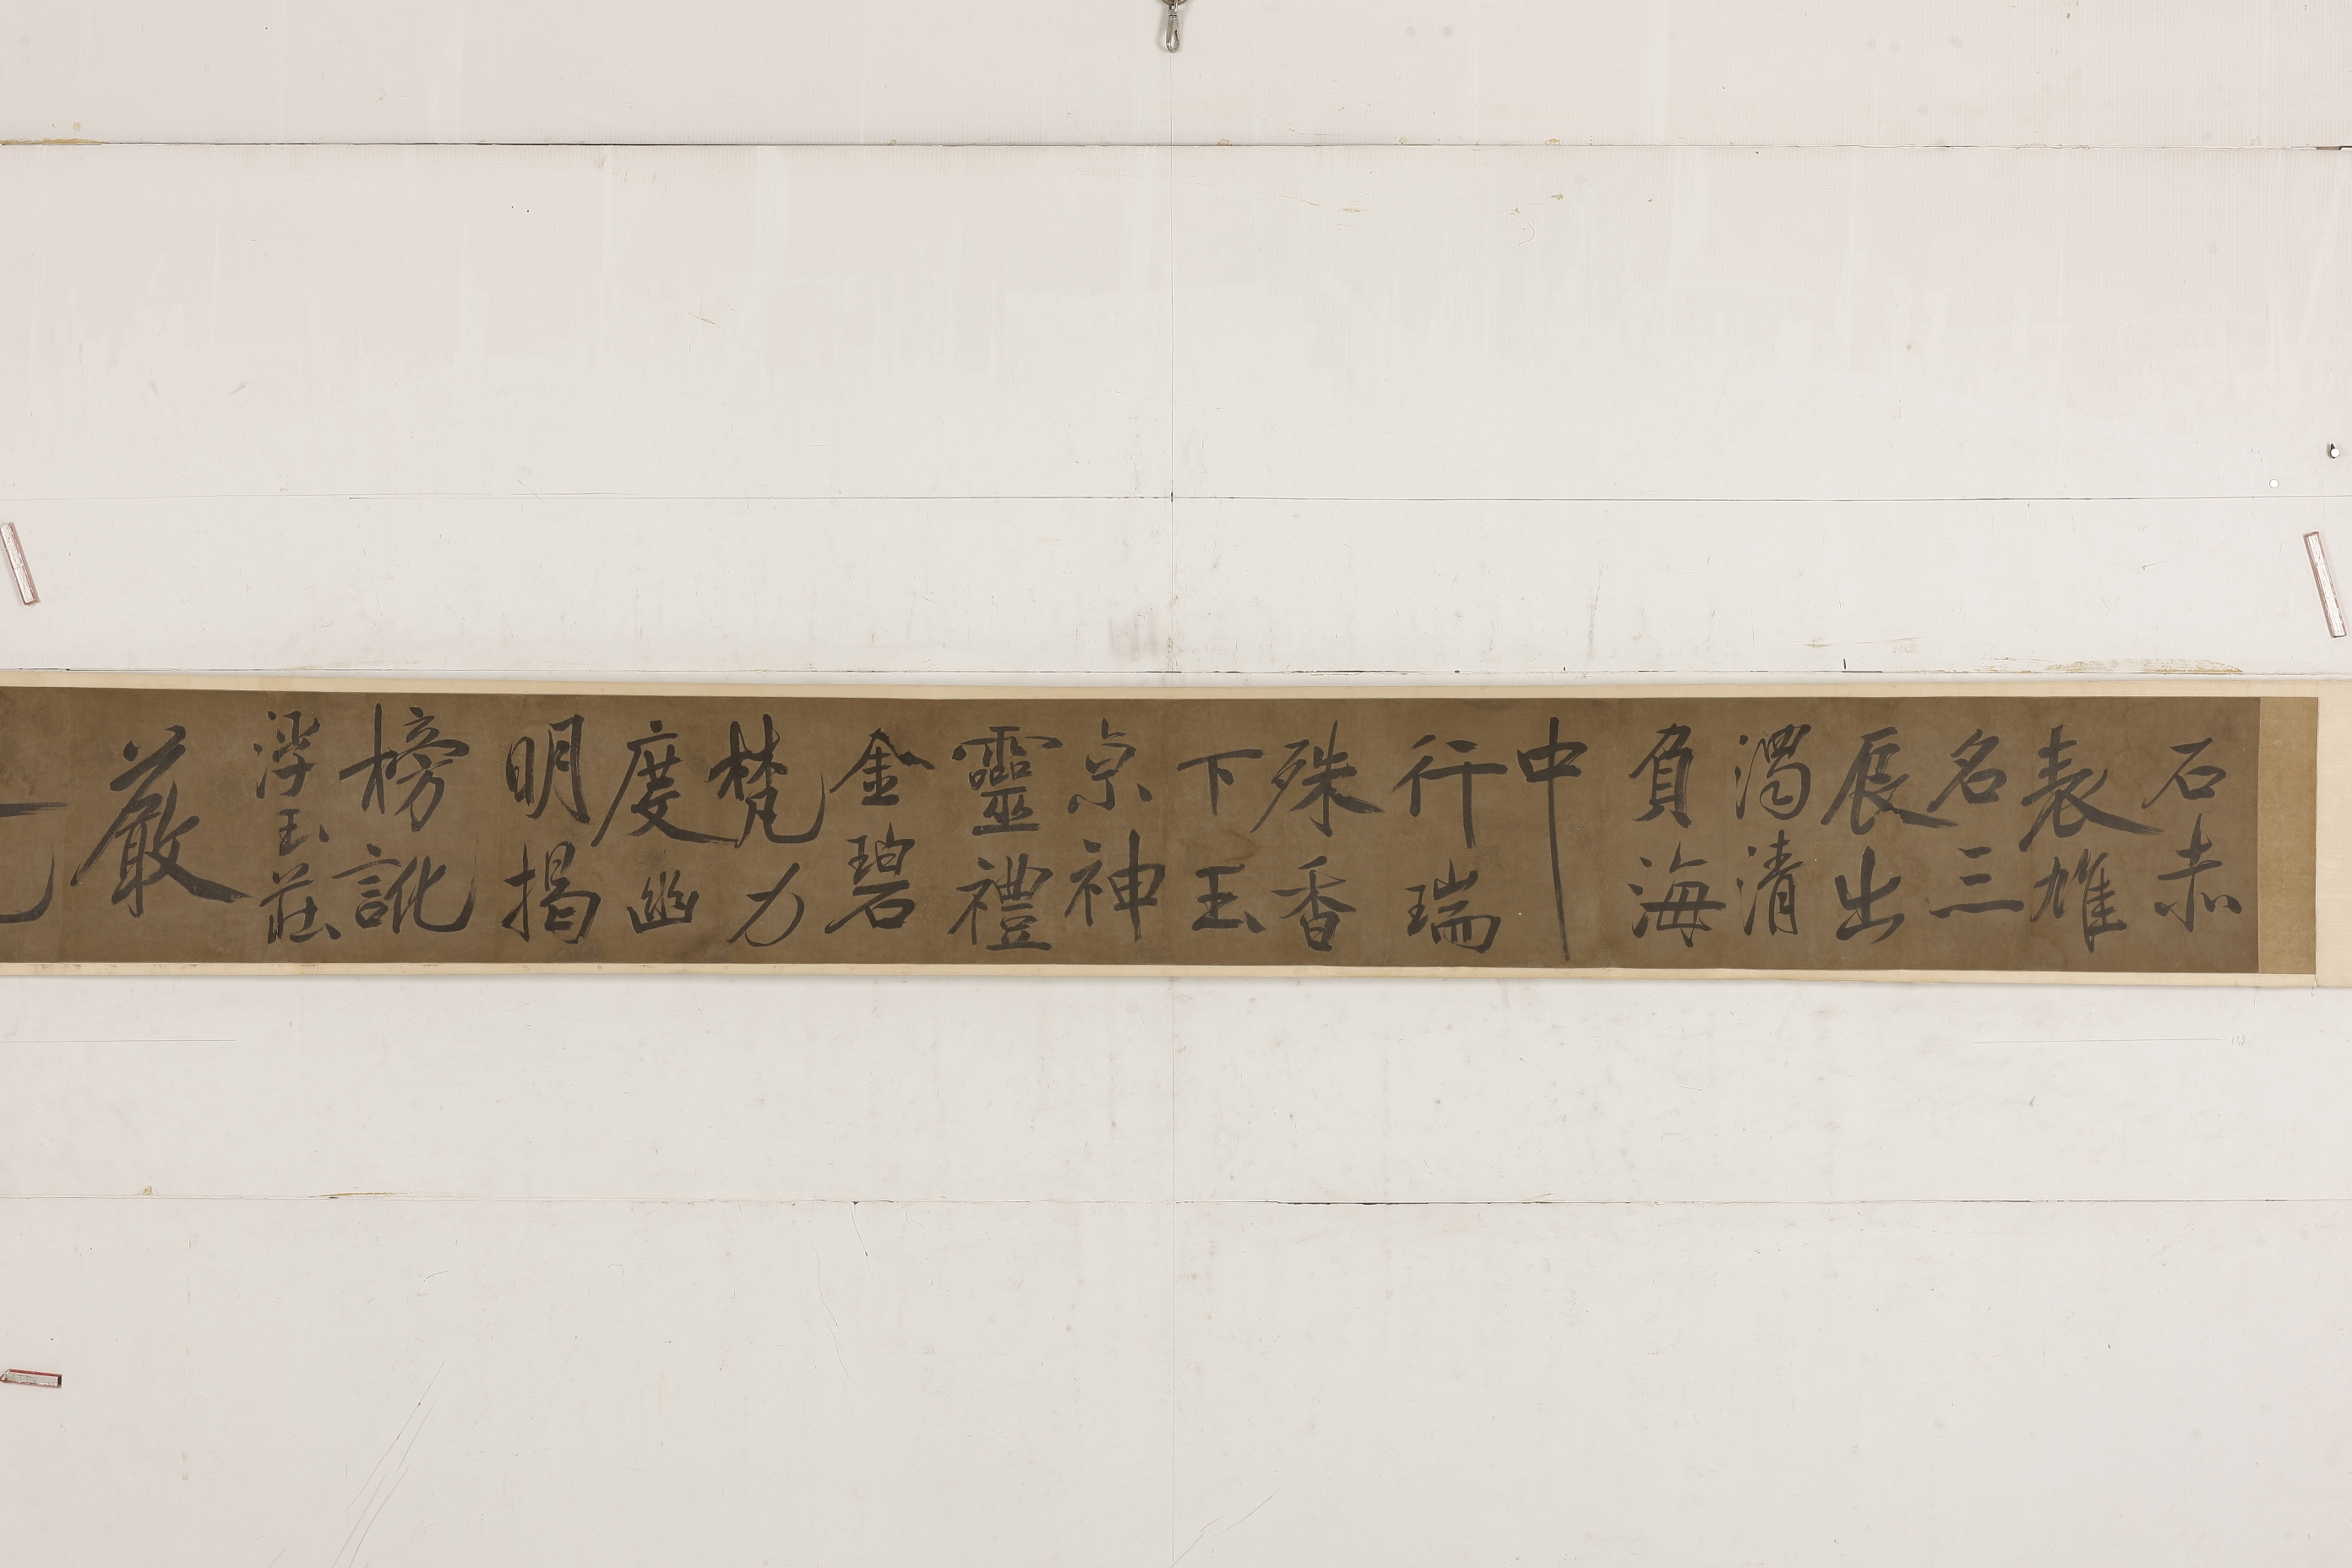 石赤
表雄
名三
辰出
濁清
負海
中
行瑞
殊香
下玉
京神
靈禮
金碧
梵力
度幽
明揭
榜訛
浮玉莊
嚴